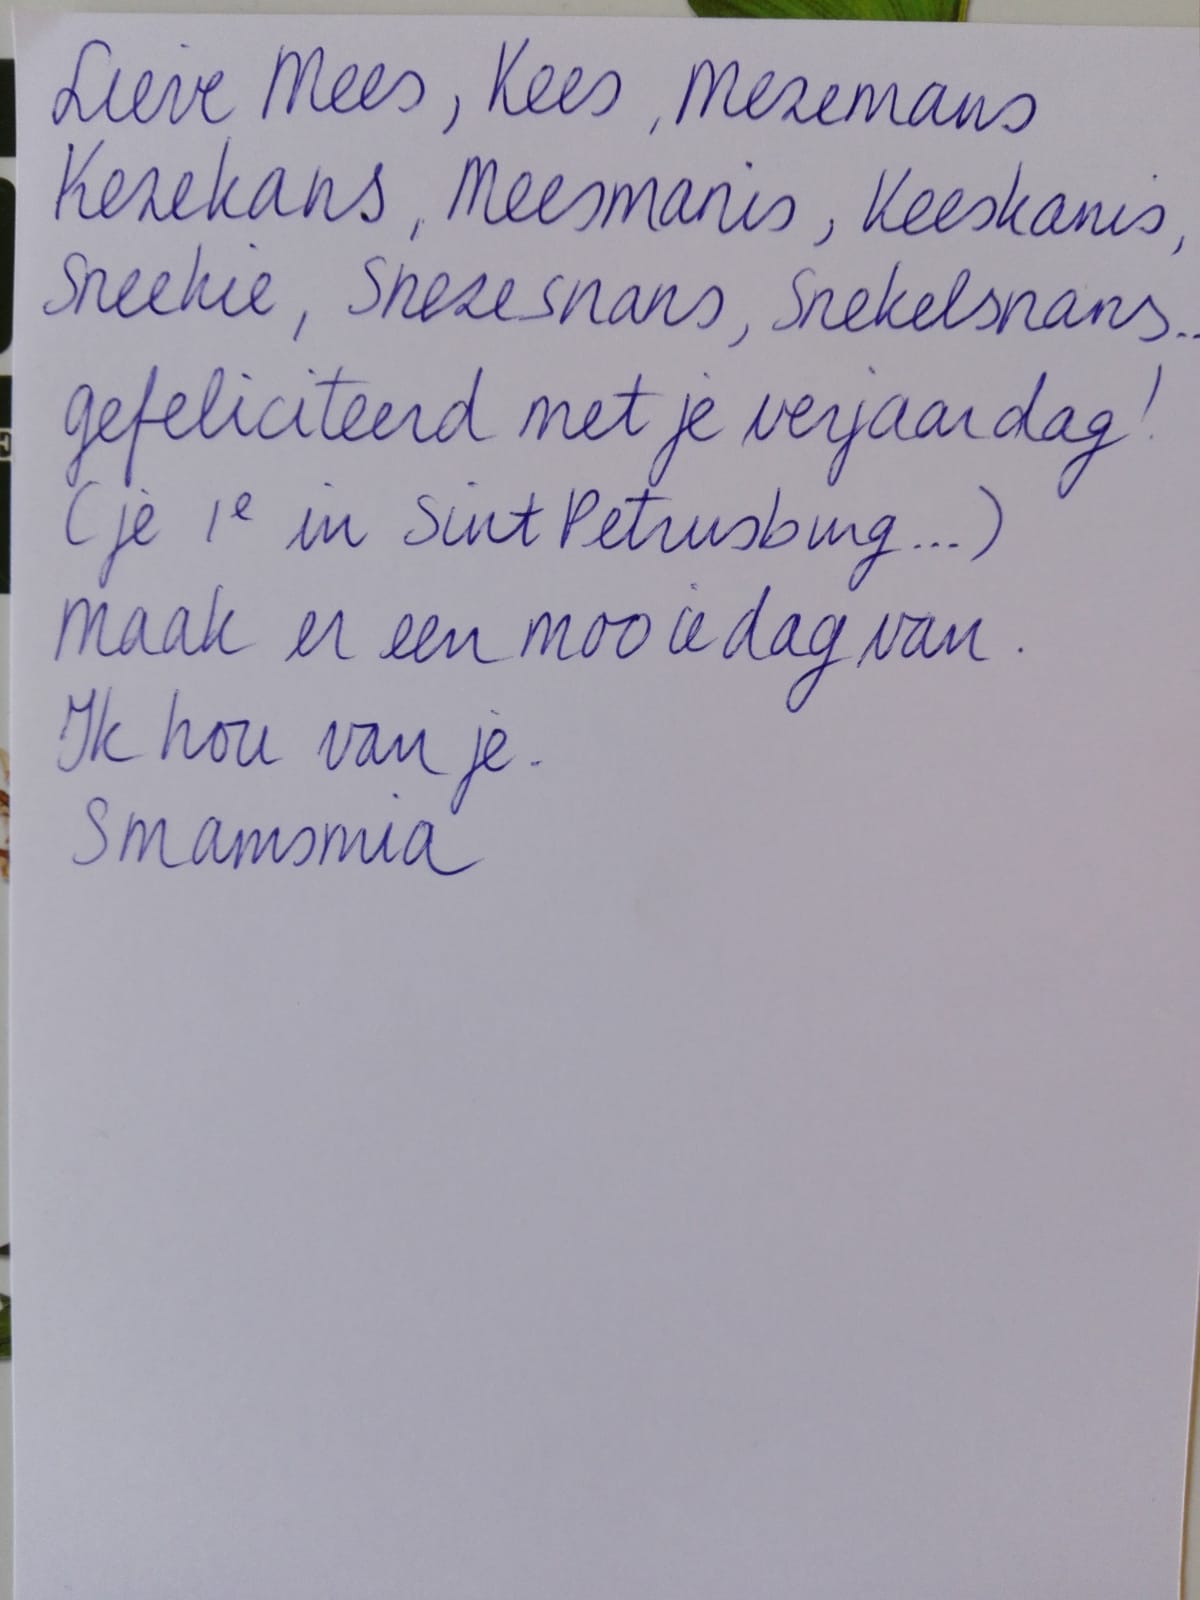 Lieve Mees, Kees, Mezemans
Kezekans, Meesmanis, Keeskanis,
Sneekie, Snezesnans, Snekelsnans..
gefeliciteerd met je verjaardag!
(je 1e in Sint Petrusburg...)
Maak er een mooie dag van.
Ik hou van je.
Smamsmia